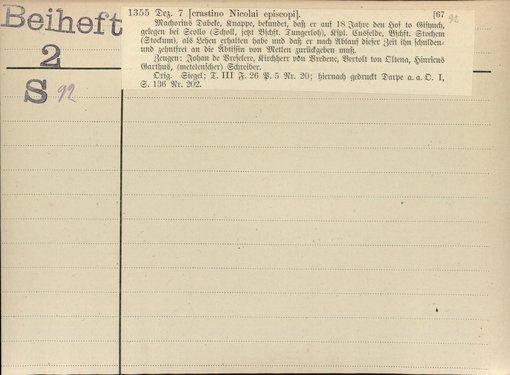 Beiheft
2
S 92
1355 Dez. 7 [crastino Nicolai episcopi]. [67
92
Machorius Dabeke, Knappe, bekundet, daß er auf 18 Jahre den Hof to
gelegen bei Scollo (Scholl, jetzt Bschft. Tungerloh), Kspl. Coesfelde, Bschft. Stochem
(Stockum), als Lehen erhalten habe und daß er nach Ablauf dieser Zeit ihn schulden-
und zehntfrei an die Äbtissin von Metelen zurückgeben muß.
Zeugen: Johan de Breselere, Kirchherr von Vredene, Bertolt ton Oltena, Hinricus
Garthus, (metelenscher) Schreiber.
Orig. Siegel; T. III F. 26 P. 5 Nr. 20; hiernach gedruckt Darpe a. a. O. I,
S. 136 Nr. 202.